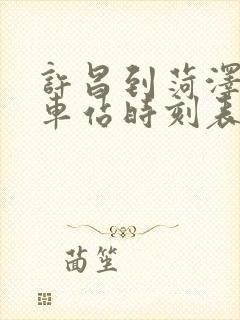 許昌到菏澤
車站時刻表
茴笙